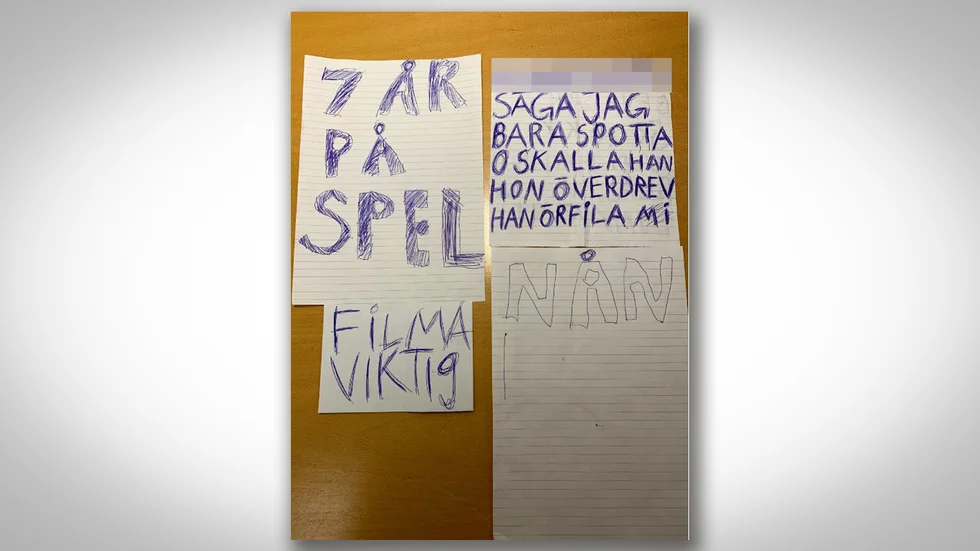 7 ÅR
PÅ
SPEL
FILMA
VIKTIG
SÄGA JAG
BARA SPOTTA
O SKALLA HAN
HON ÖVERDREV
HAN ÖRFILA Mi
NÅN